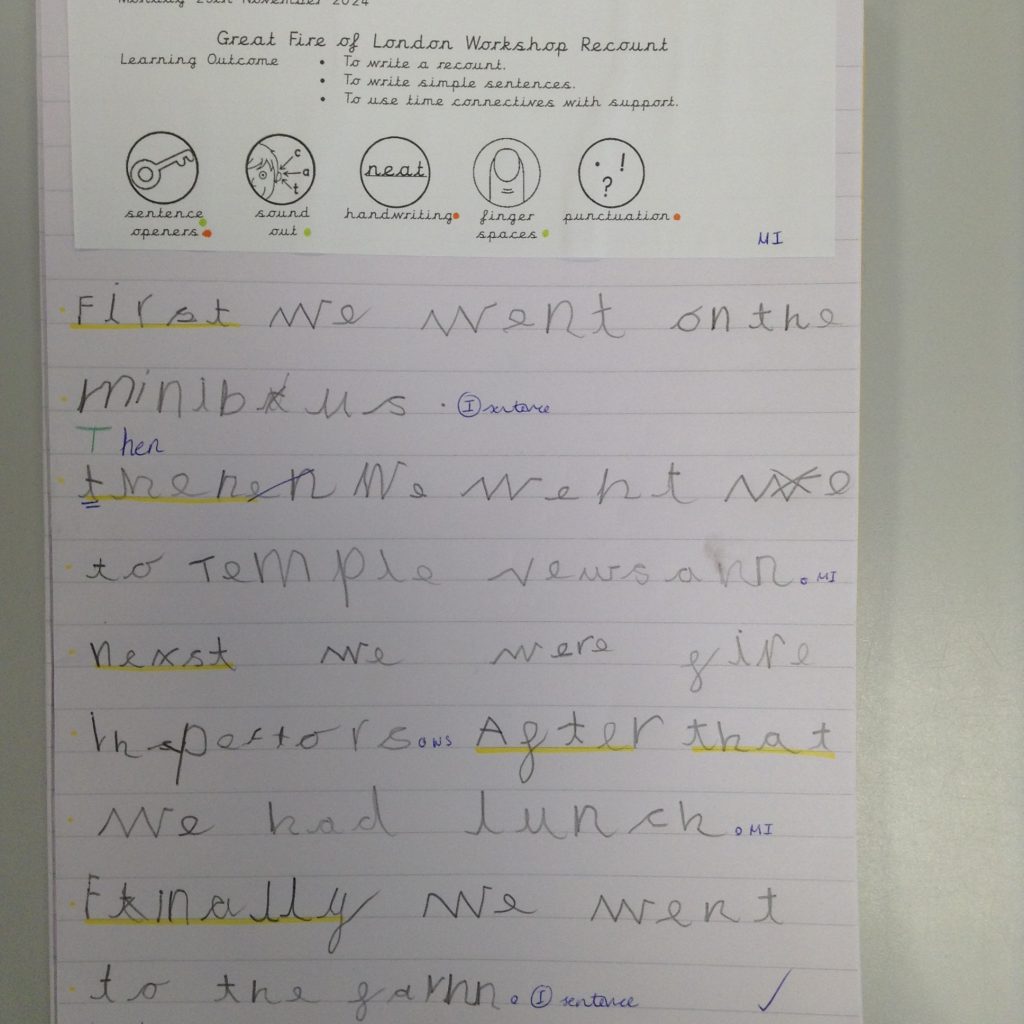 Monday 25th November 2024
Great Fire of London Workshop Recount
Learning Outcome • To write a recount.
• To write simple sentences.
• To use time connectives with support.
c
a
t
neat
. ! ?
sentence openers
sound out
handwriting
finger spaces
punctuation
MI
First we went on the
minibus . I sentence
Then
thenen We went we
to Temple newsann. MI
nexst we were fire
inspectors. WS After that
we had lunch. MI
Finally we went
to the farnn. I sentence